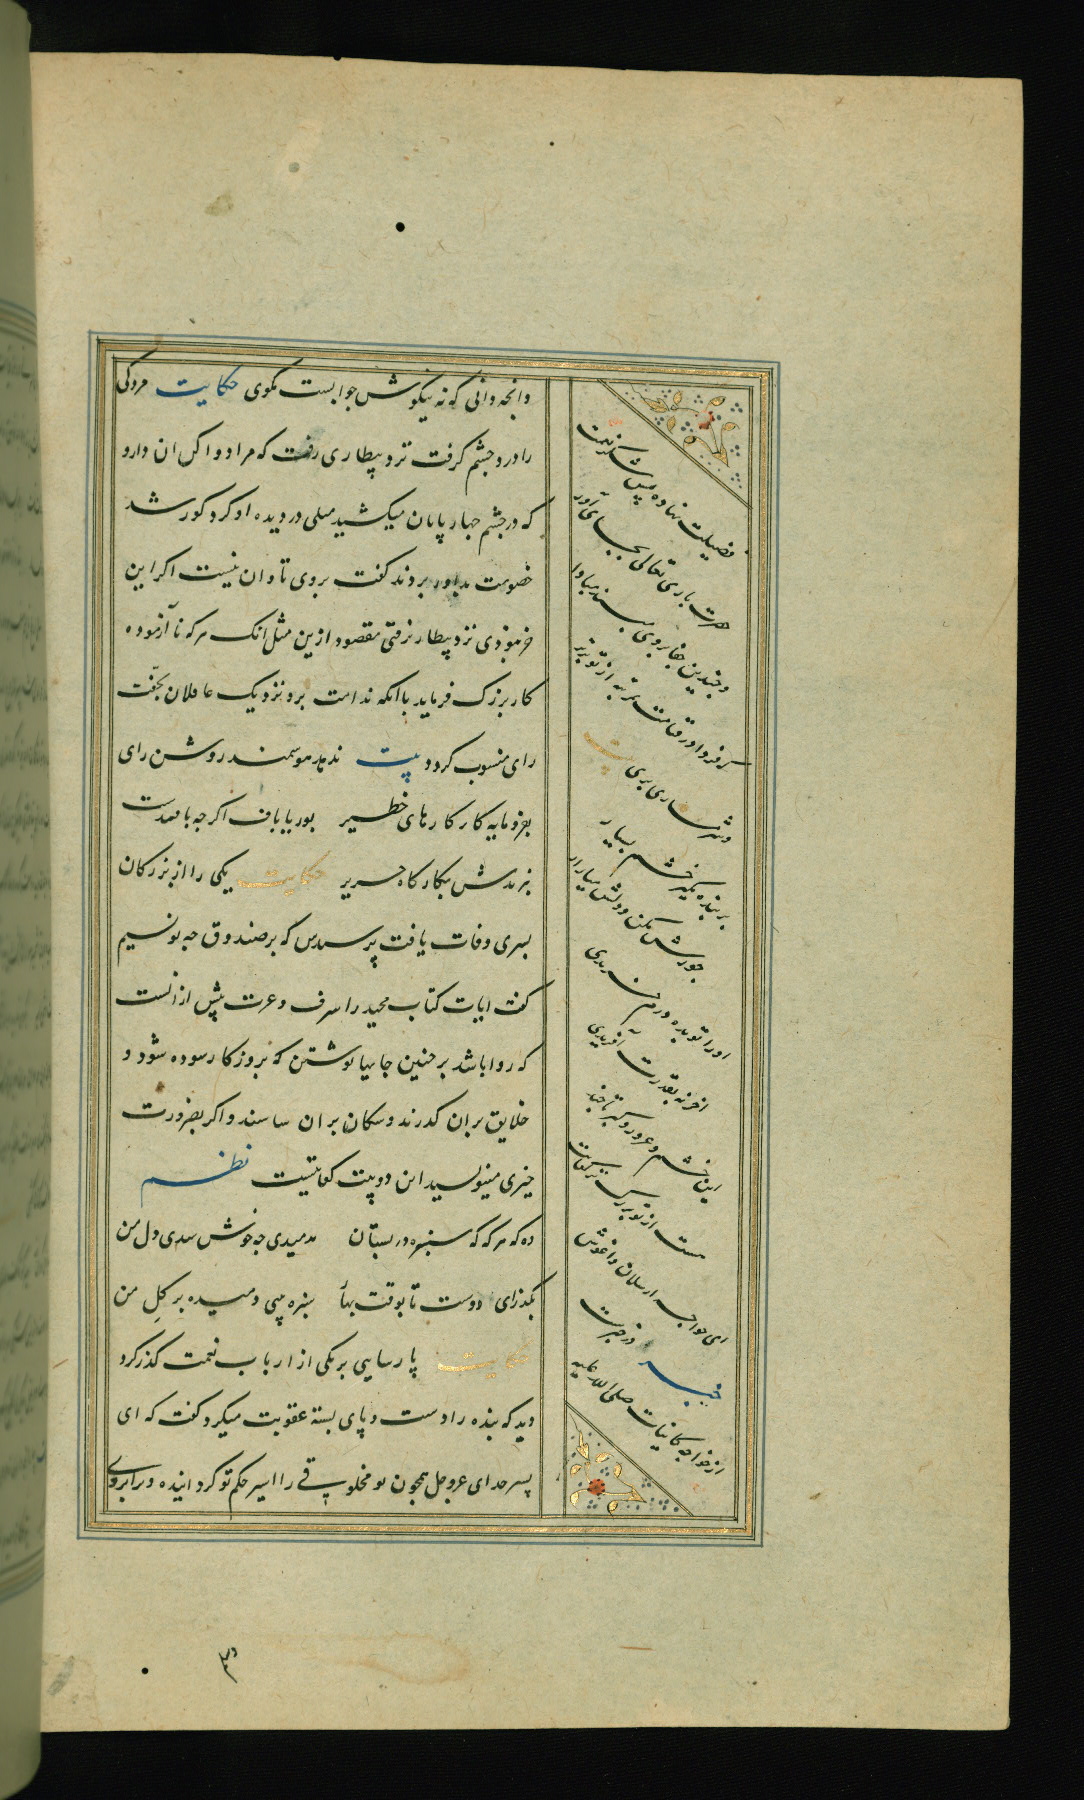 وانچه دانی که نه نیکوش جوابست مگوی حکایت مردکی
را درد چشم گرفت نزد بیطاری رفت که مرا دوا کن ان دارو
که در چشم چهارپایان میکشید میلی در دیده او کرد کور شد
خصومت بداور بردند گفت بروی تاوان نیست اگر این
خر نبودی نزد بیطار نرفتی مقصود ازین مثل انک هر که نا آزموده
کار بزرک فرماید با آنکه ندامت برد نزدیک عاقلان بخفت
رای منسوب گردد بیت ندهد هوشمند روشن رای
بفرومایه کار کارهای خطیر بوریاباف اگرچه بافندست
نبرندش بکارگاه حریر حکایت یکی را از بزرگان
پسری وفات یافت پرسیدش که بر صندوق چه نویسیم
گفت ایات کتاب مجید را شرف و عزت بیش از انست
که روا باشد بر چنین جایها نوشتن که بروزگار سوده شود و
خلایق بران گذرند و سگان بران شاشند و اگر بضرورت
چیزی مینویسید این دو بیت کفایتست نظم
وه که هر که که سبزه در بستان بدمیدی چه خوش شدی دل من
بگذر ای دوست تا بوقت بهار سبزه بینی دمیده بر گل من
حکایت پارسایی بر یکی از ارباب نعمت گذر کرد
دید که بنده را دست و پای بسته عقوبت میکرد گفت که ای
پسر خدای عزوجل همچون تو مخلوقی را اسیر حکم تو گردانیده و ترا بر وی
فضیلت نهاده پس شکر نعمت
حضرت باری تعالی بجای آور
و چندین جفا بروی مپسند مبادا
که فردا در قیامت مرتبه از تو برتر
و شرمساری بری بیت
بر بنده مگیر خشم بسیار
جورش مکن و دلش میازار
او را تو بده درم خریدی
اخر نه بقدرت آفریدی
این خشم و غرور و کبر تا چند
هست از تو بزرگ تر
ای خواجه ارسلان و اغوش
در خبرست
از خواجه کاینات صلی الله علیه